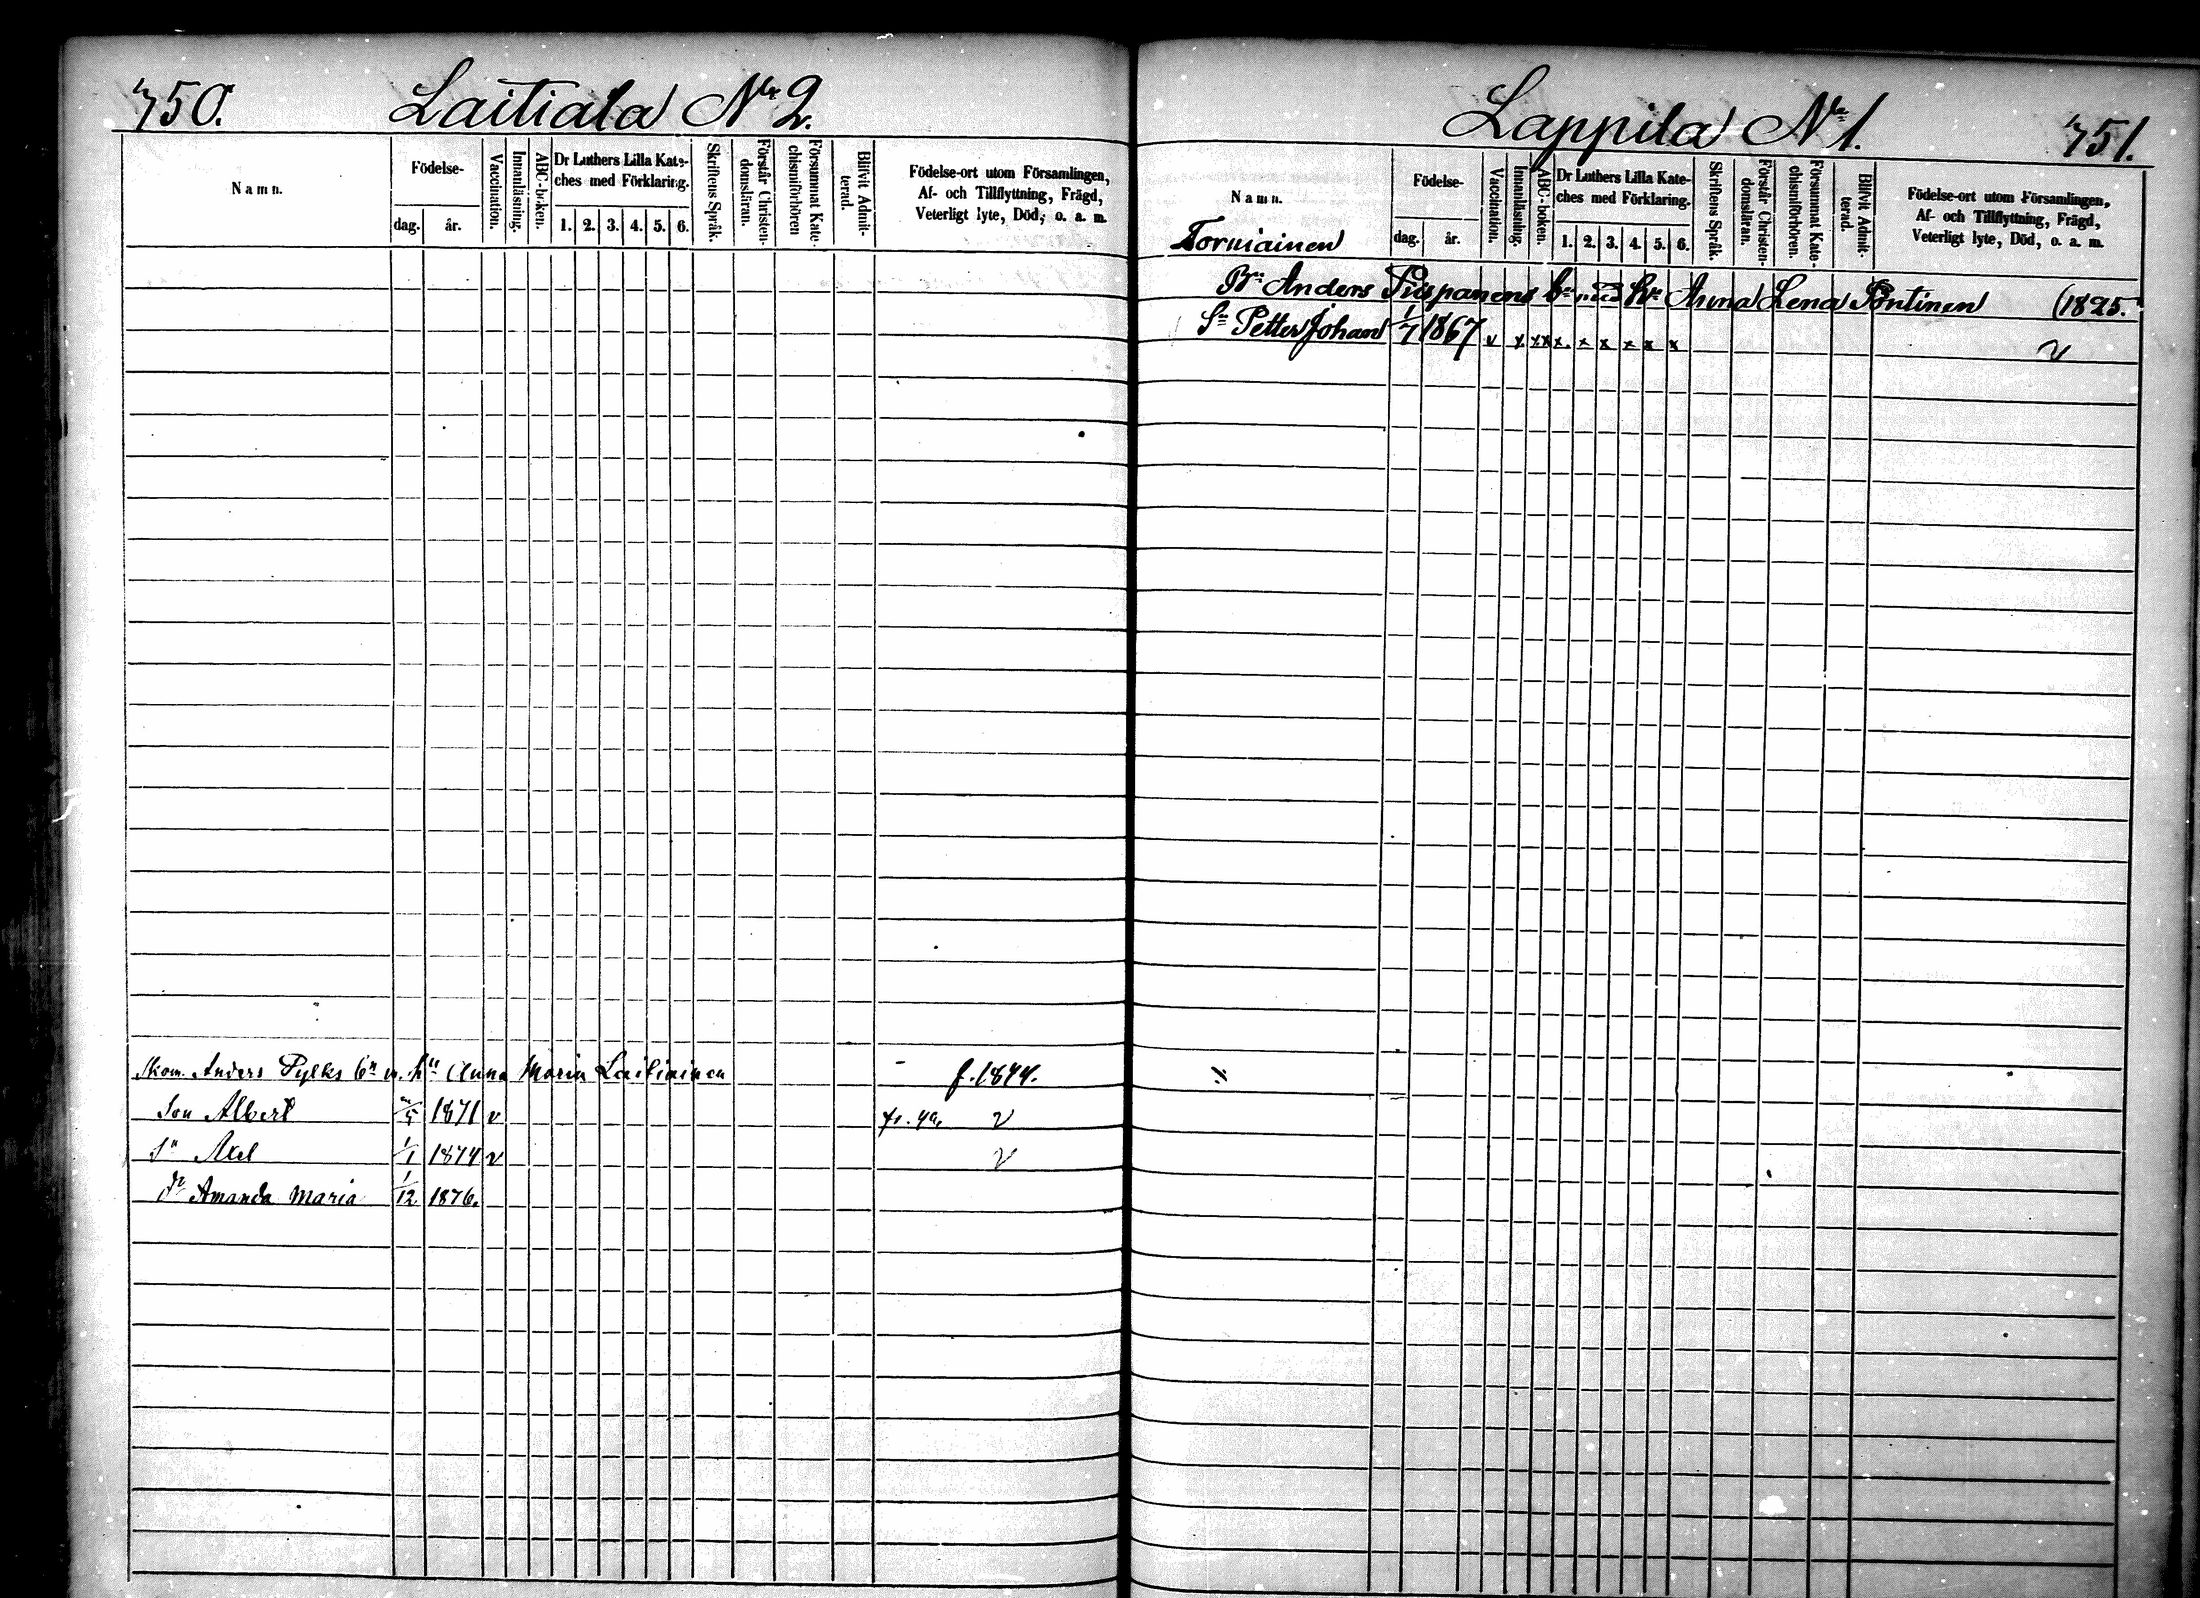 750. Laitiala No 2.
Namn.
Födelse-
dag. år.
Vaccination.
Innanläsning.
ABC-boken.
Dr Luthers Lilla Kate-
ches med Förklaring.
1. 2. 3. 4. 5. 6.
Skriftens Språk.
Förstår Christen-
domsläran.
Försummat Kate-
chismiförhören
Blifvit Admit-
terad.
Födelse-ort utom Församlingen,
Af- och Tillflyttning, Frägd,
Veterligt lyte, Död, o. a. m.
Anders Pylks bn m. hu Anna Maria Laitiainen f. 1844.
Son Albert 1871 v v
Sn Axel 1/1 1874 v v
dr Amanda Maria 1/12 1876.
Lappila No 1. 751.
Namn.
Tormiainen
Födelse-
dag. år.
Vaccination.
Innanläsning.
ABC-boken.
Dr Luthers Lilla Kate-
ches med Förklaring.
1. 2. 3. 4. 5. 6.
Skriftens Språk.
Förstår Christen-
domsläran.
Försummat Kate-
chismiförhören.
Blifvit Admit-
terad.
Födelse-ort utom Församlingen,
Af- och Tillflyttning, Frägd,
Veterligt lyte, Död, o. a. m.
Bn Anders Piispanens bn med hu Anna Lena Pöntinen (1825.
Sn Petter Johan 1/7 1867 v x xx x. x x x x x v